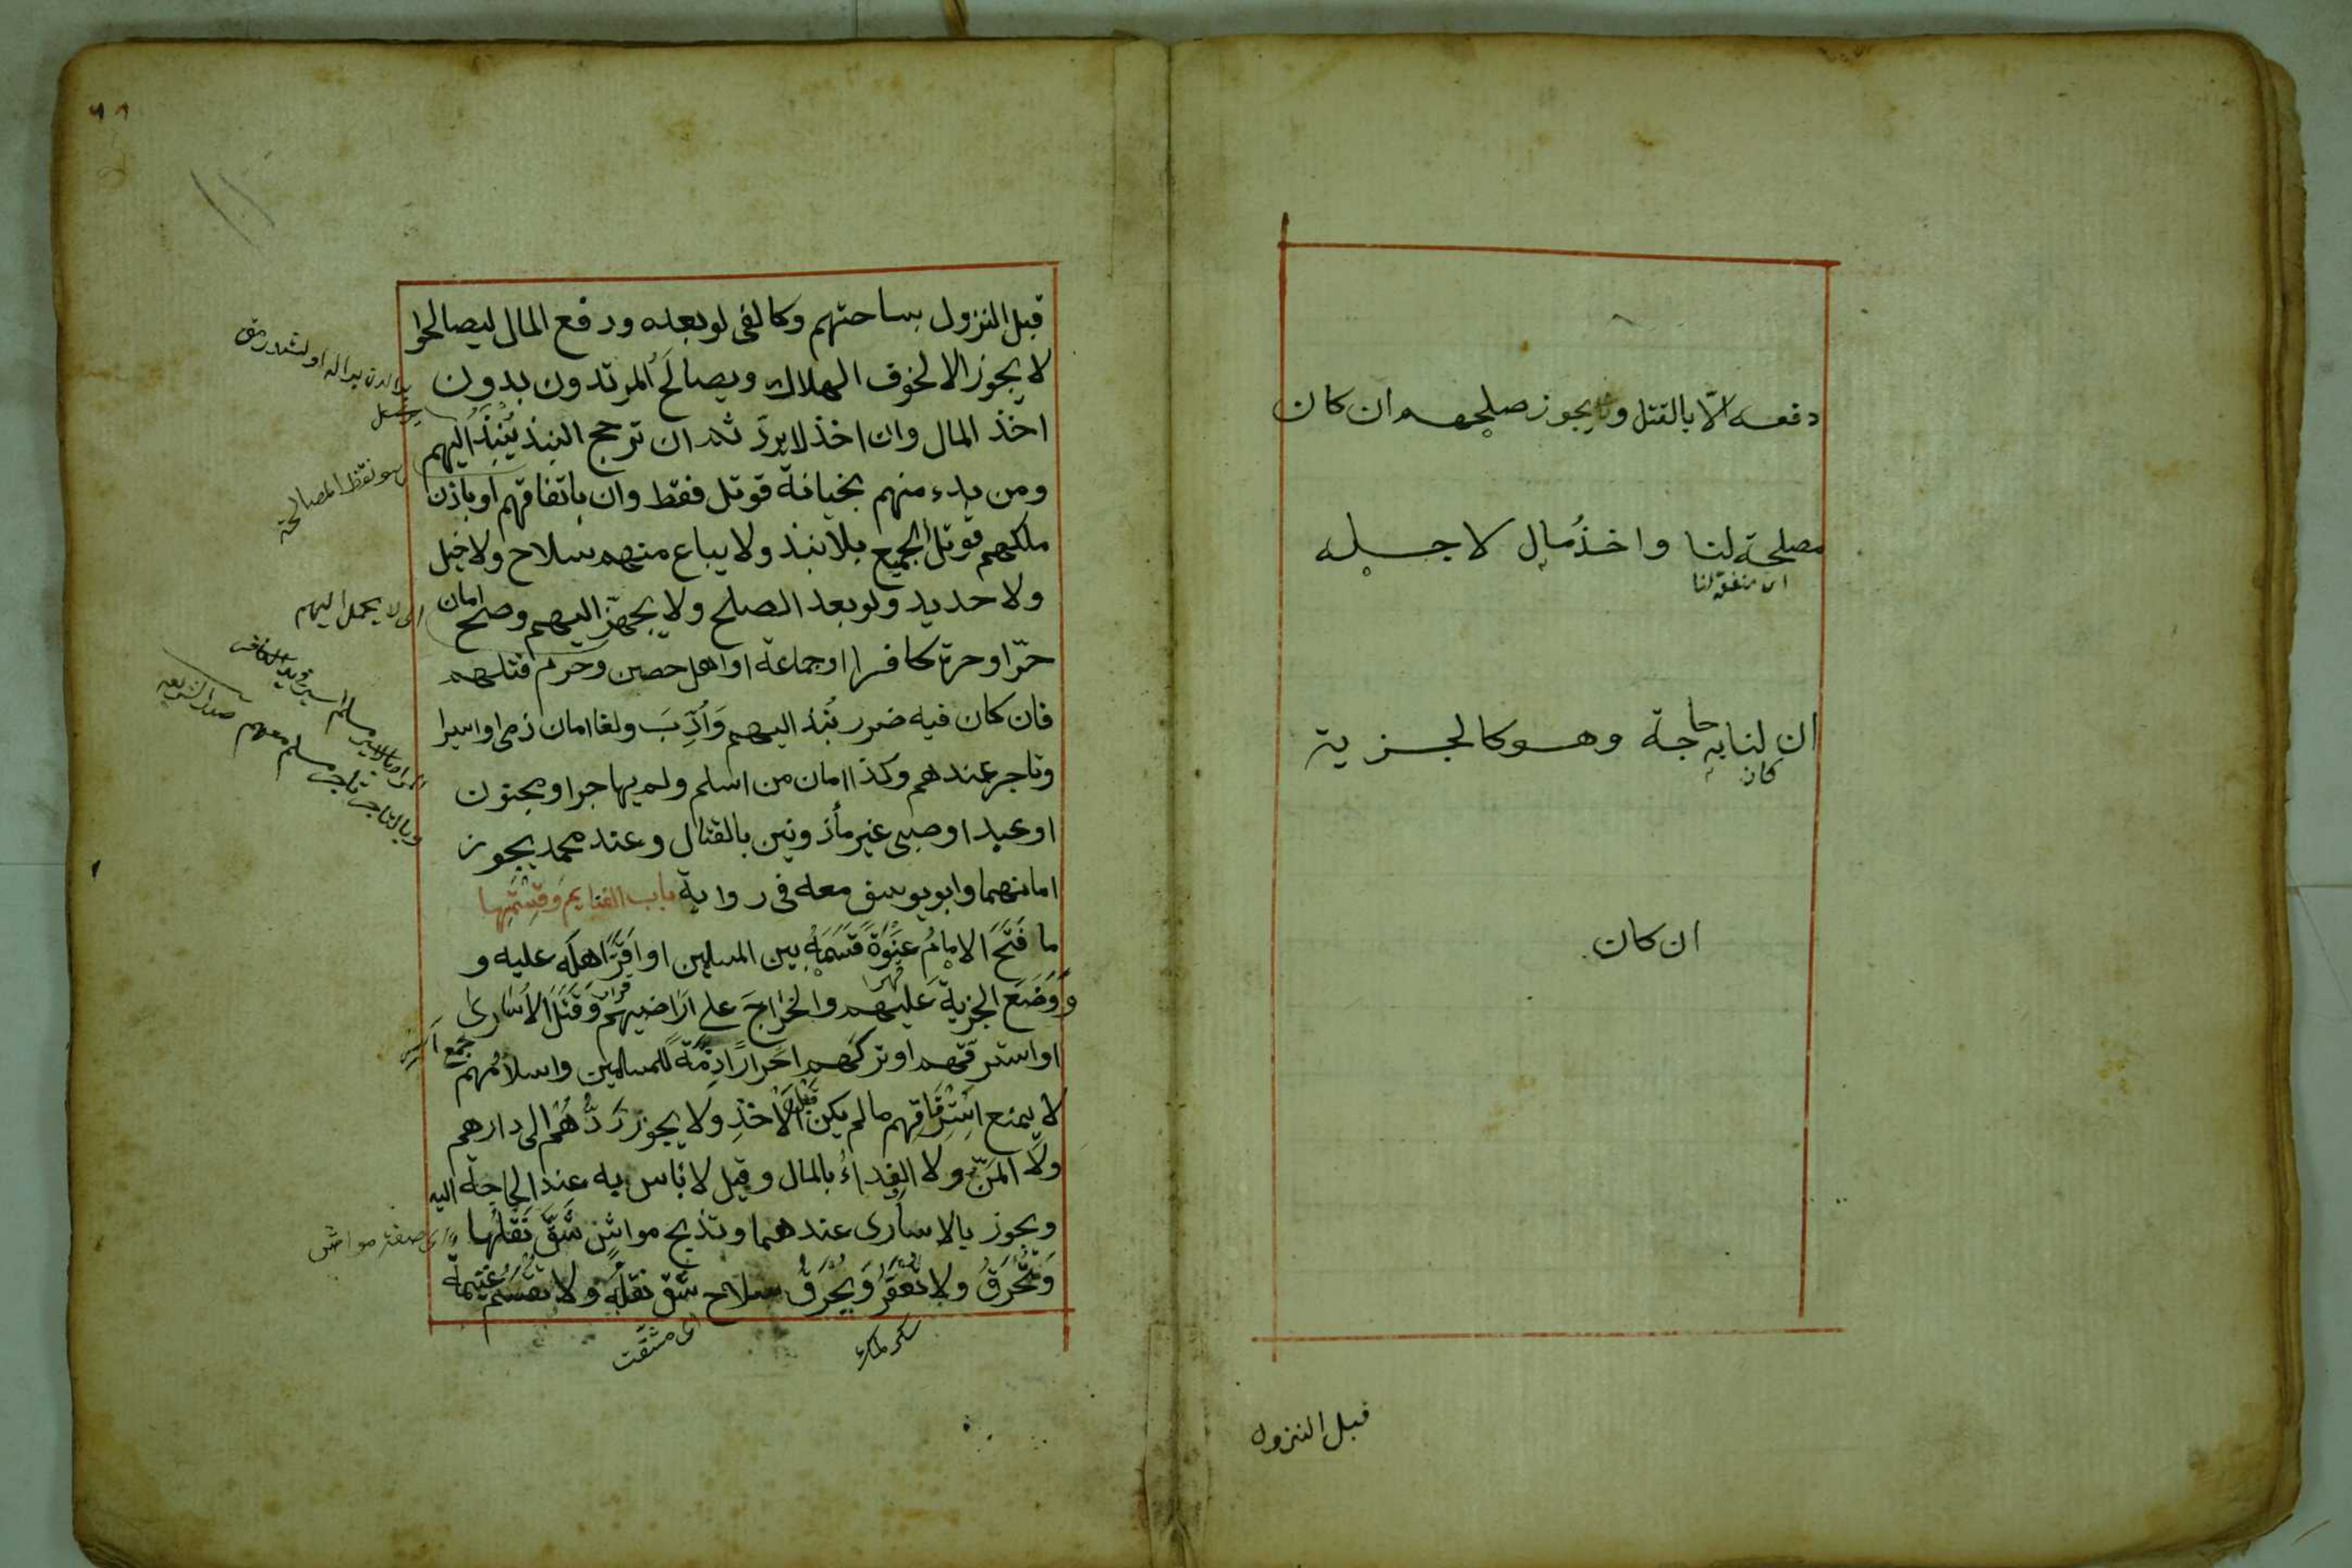 دفعه الّا بالقتل ويجوز صلحهم ان كان
مصلحة لنا واخذُ مال لاجله
ان منفعة لنا
ان لنا به حاجة وهو كالجزية
كان
ان كان
قبل النزول
٦٨
قبل النزول بساحتهم وكالفى لو بعده ودفع المال ليصالحوا
لا يجوز الا لخوف الهلاك ويصالَح المرتدون بدون
اخذ المال وان اخذ لا يردّ ثم ان ترجح النبذ يُنبَذُ اليهم
ومن بدء منهم بخيانة قوتل فقط وان باتفاقهم او باذن
ملكهم قوتل الجميع بلا نبذ ولا يباع منهم سلاح ولا خيل
ولا حديد ولو بعد الصلح ولا يجهّز اليهم وصح امان
حرّ او حرة كافرا او جماعة او اهل حصن وحرم قتلهم
فان كان فيه ضرر نُبذ اليهم وَاُدِّبَ ولغا امان ذمى او اسير
وتاجر عندهم وكذا امان من اسلم ولم يهاجر او مجنون
او عبد او صبى غير مأذونين بالقتال وعند محمد يجوز
امانهما وابو يوسف معه فى رواية باب الغنايم وقسمتها
ما فَتَحَ الامامُ عَنْوَةً قَسَمَهُ بين المسلمين او اَقَرَّ اهلَه عليه و
وَوَضَعَ الجزية عَليهم والخراجَ على اَراضيهم وَقَتَلَ الاُسارى
او استرقّهم او تركَهم احرارًا ذِمّةً للمسلمين واسلامُهم
لا يمنع اسْتِرْقَاقهم ما لم يكن قبل الاَخْذِ ولا يجوز رَدُّهُم الى دارهم
ولا المَنّ ولا الفداءُ بالمال وقيل لا باس به عند الحاجة اليه
ويجوز بالاسارى عندهما وتذبح مواشٍ شَقَّ نَقلُها
وَتُحْرَقُ ولا تُعْقَرُ وَيُحْرَقُ سلاح شقّ نقلُه ولا تُقْسَمُ غنيمة
هو نقظ المصالحة
اى لا يحمل اليهم
وبالتاجر تاجر مسلم معهم صدر الشريعه
جمع اسير
اى صفة مواش
اى مشقّت